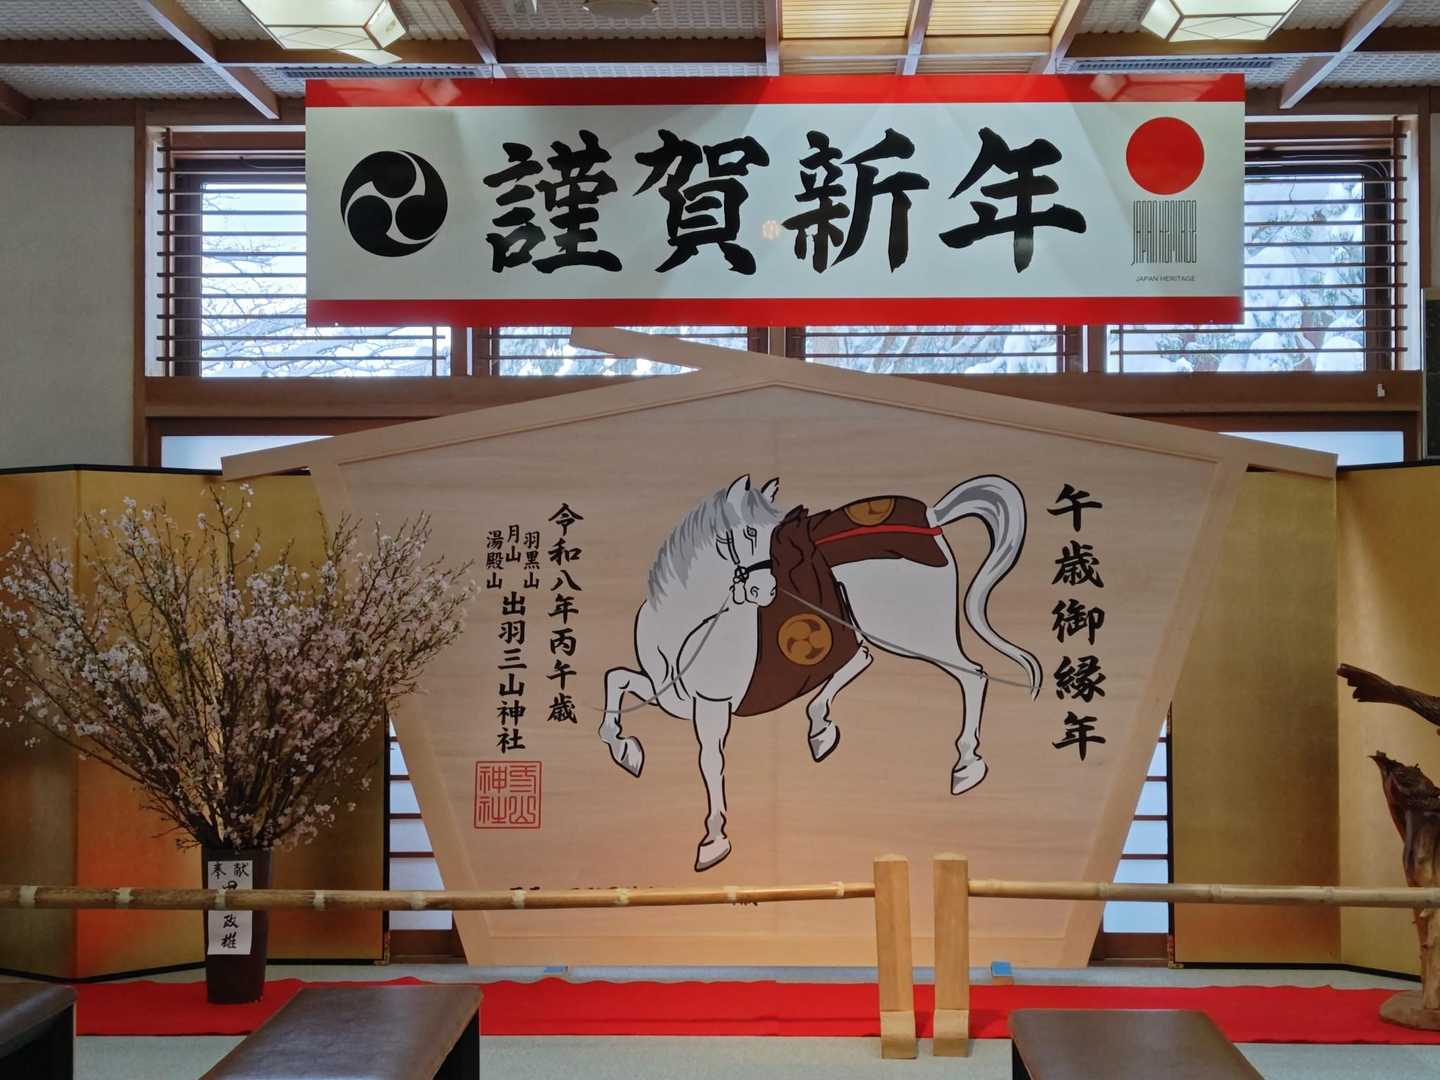 謹賀新年
JAPAN HERITAGE
午歳御縁年
令和八年丙午歳
羽黒山
月山
湯殿山
出羽三山神社
奉献
政雄